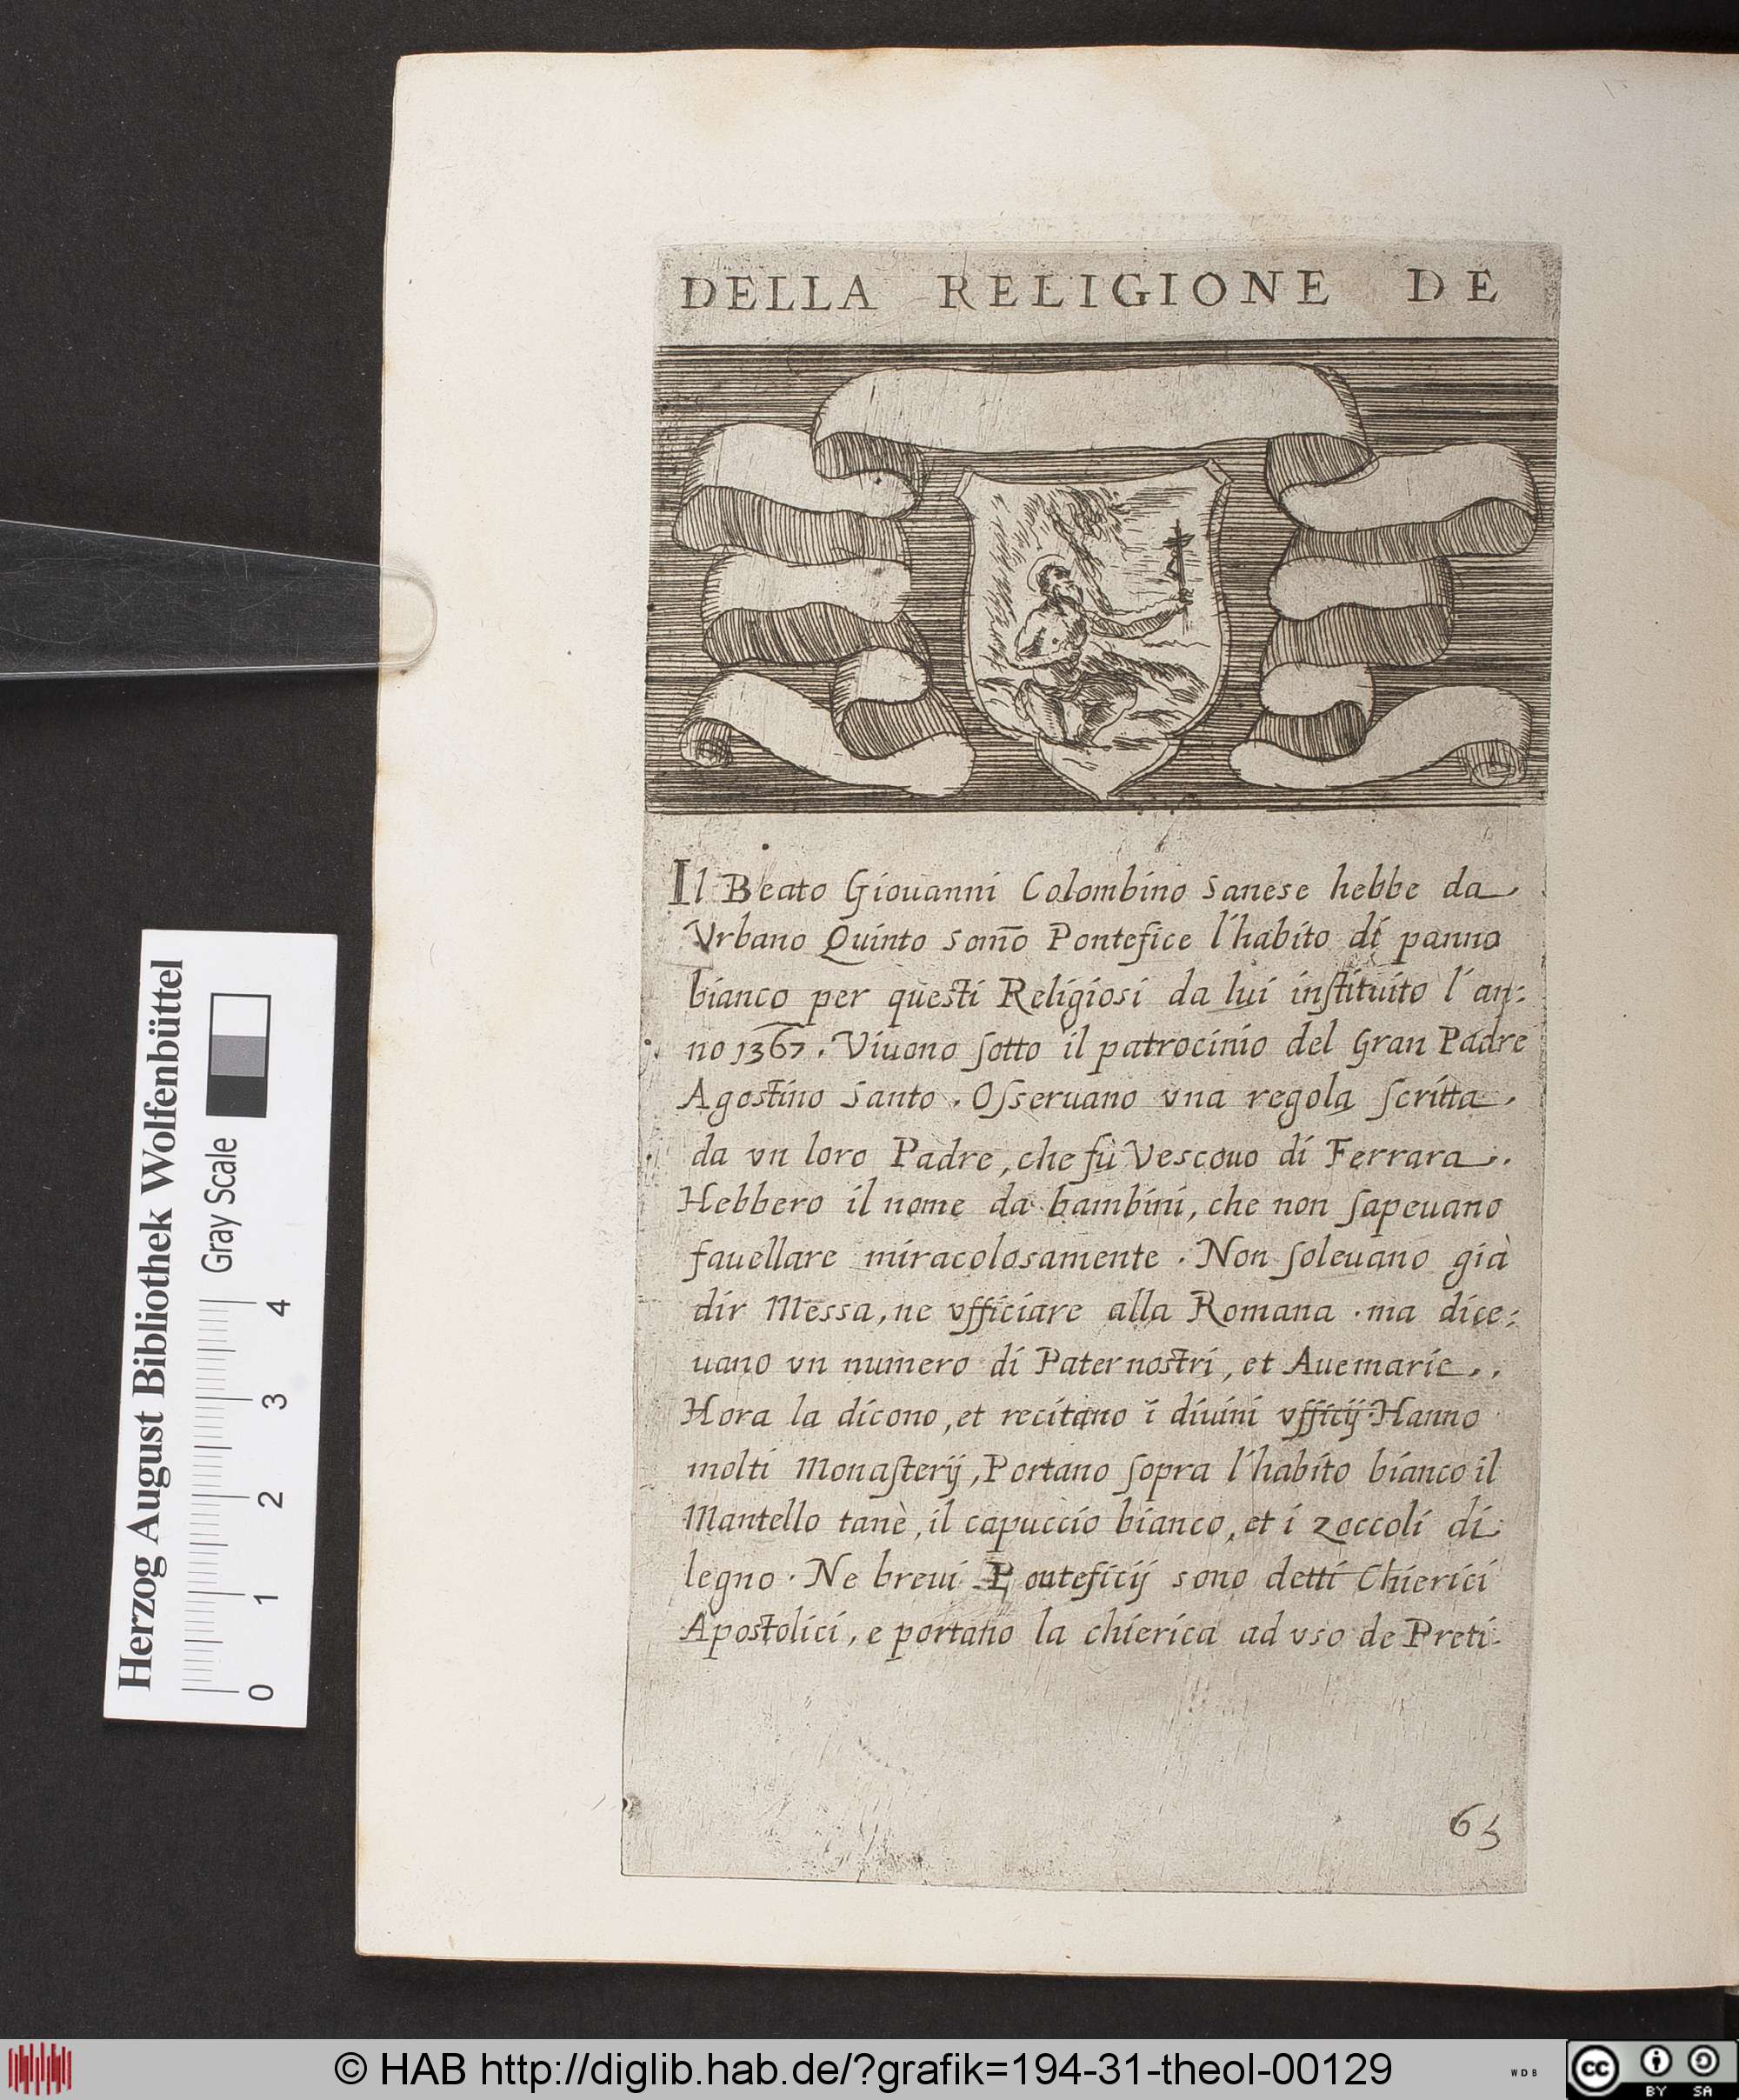 DELLA RELIGIONE DE
Il Beato Giouanni Colombino Sanese hebbe da
Vrbano Quinto som̃o Pontefice l'habito di panno
bianco per questi Religiosi da lui instituito l'an:
no 1367. Viuono sotto il patrocinio del Gran Padre
Agostino Santo. Osseruano vna regola scritta
da vn loro Padre, che fù Vescouo di Ferrara.
Hebbero il nome da bambini, che non sapeuano
fauellare miracolosamente. Non soleuano già
dir Messa, ne vfficiare alla Romana. ma dice:
uano vn numero di Pater nostri, et Auemarie.
Hora la dicono, et recitano i diuini vfficij. Hanno
molti Monasterij, Portano sopra l'habito bianco il
Mantello tanè, il capuccio bianco, et i zoccoli di
legno. Ne breui Ponteficij sono detti Chierici
Apostolici, e portano la chierica ad vso de Preti.
65
Herzog August Bibliothek Wolfenbüttel
Gray Scale
0 1 2 3 4
© HAB http://diglib.hab.de/?grafik=194-31-theol-00129
WDB
cc BY SA